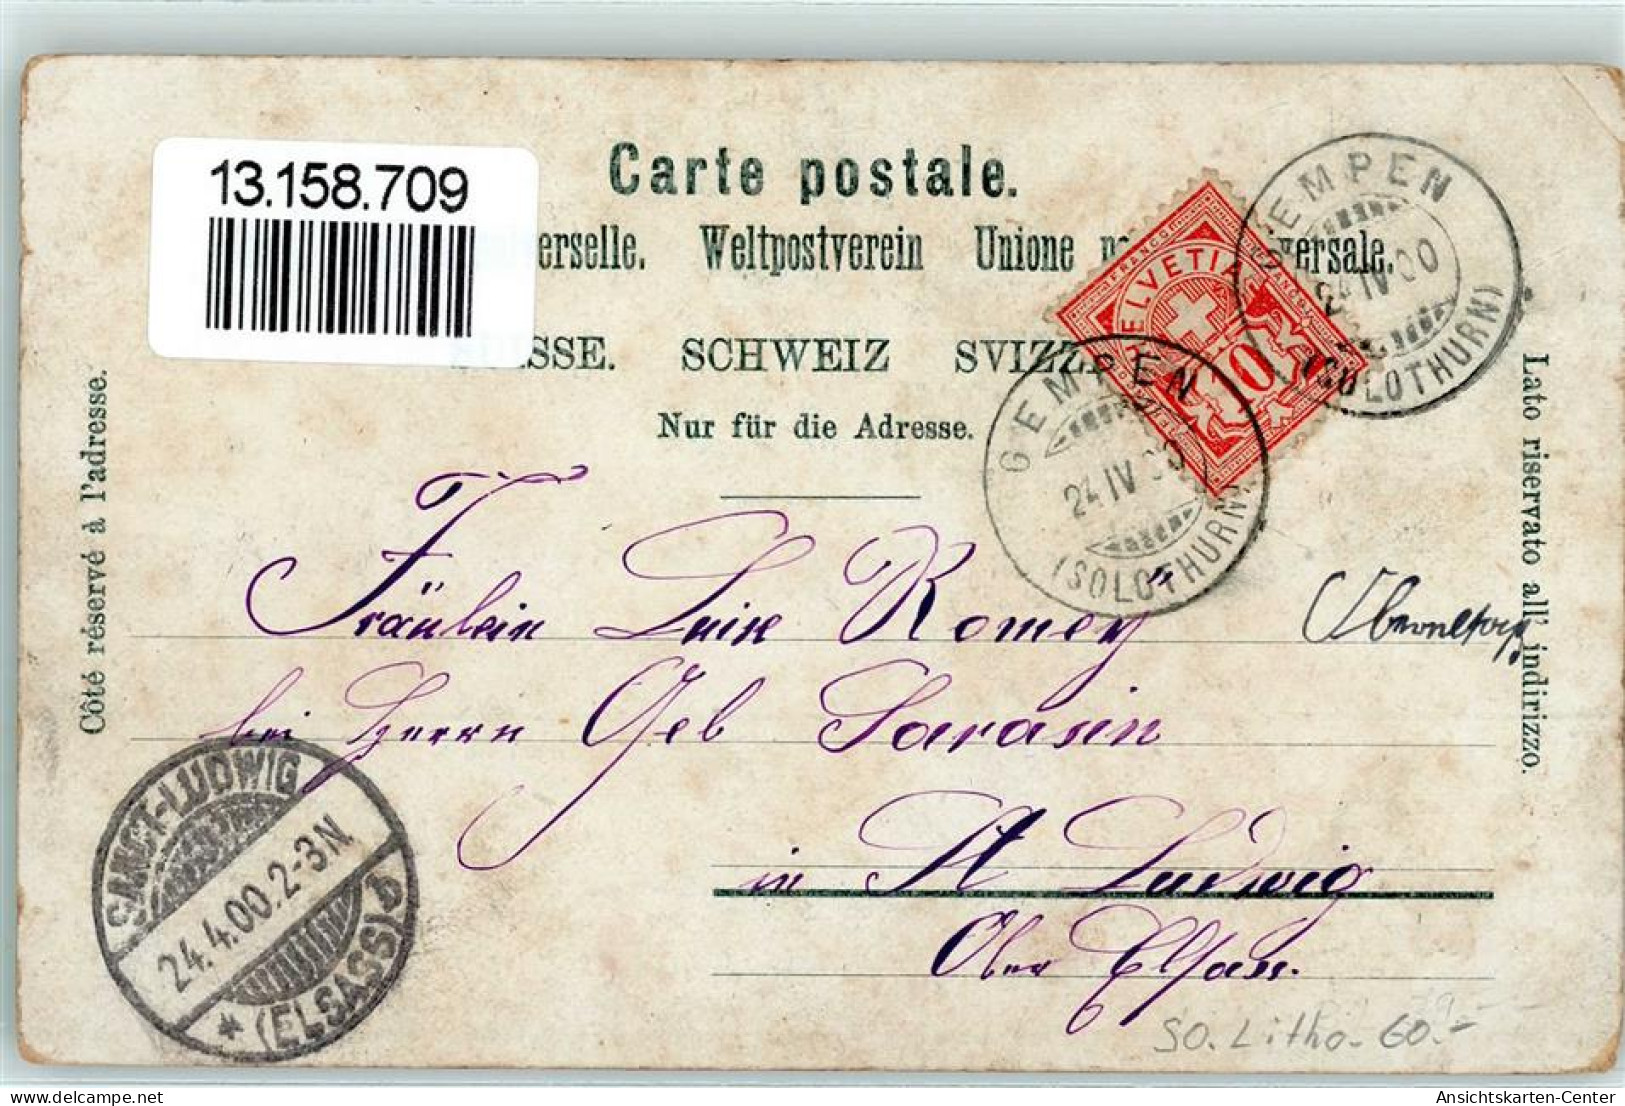 13.158.709
Carte postale.
erselle. Weltpostverein Unione versale.
SSE. SCHWEIZ SVIZZ
Nur für die Adresse.
Côté réservé à l'adresse.
Lato riservato all' indirizzo.
HELVETIA
FRANCO
10
GEMPEN
24 IV 00
(SOLOTHURN)
GEMPEN
24 IV 00
(SOLOTHURN)
Fräulein Luise Romey
bei Herrn Geb Sarasin
in St Ludwig
Ober Elsass.
SANCT-LUDWIG
24.4.00.2-3N.
* (ELSASS) b
SO. Litho. 60.-
Ansichtskarten-Center